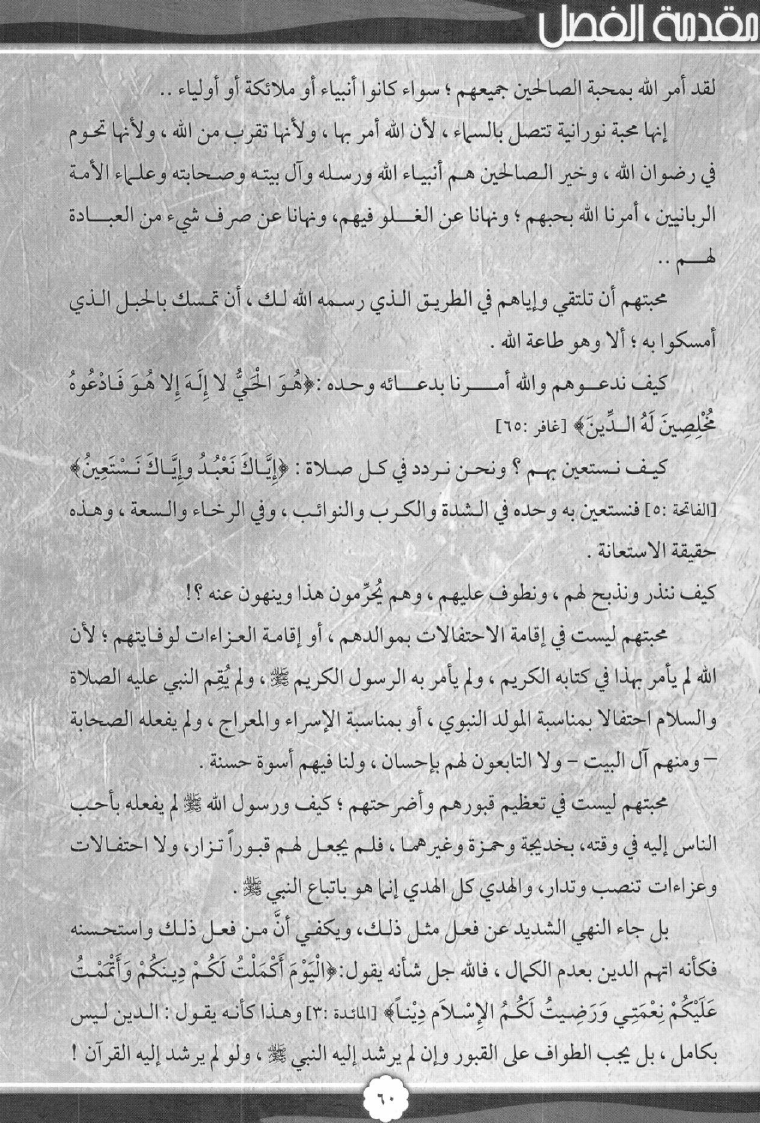 مقدمة الفصل
لقد أمر الله بمحبة الصالحين جميعهم ؛ سواء كانوا أنبياء أو ملائكة أو أولياء ..
إنها محبة نورانية تتصل بالسماء ، لأن الله أمر بها ، ولأنها تقرب من الله ، ولأنها تحوم
في رضوان الله ، وخير الصالحين هم أنبياء الله ورسله وآل بيته وصحابته وعلماء الأمة
الربانيين ، أمرنا الله بحبهم ؛ ونهانا عن الغلو فيهم، ونهانا عن صرف شيء من العبادة
لهم ..
محبتهم أن تلتقي وإياهم في الطريق الذي رسمه الله لك ، أن تمسك بالحبل الذي
أمسكوا به ؛ ألا وهو طاعة الله .
كيف ندعوهم والله أمرنا بدعائه وحده :﴿هُوَ الْحَيُّ لا إِلَهَ إِلا هُوَ فَادْعُوهُ
مُخْلِصِينَ لَهُ الدِّينَ﴾ [غافر :٦٥]
كيف نستعين بهم ؟ ونحن نردد في كل صلاة : ﴿إِيَّاكَ نَعْبُدُ وإِيَّاكَ نَسْتَعِينُ﴾
[الفاتحة :٥] فنستعين به وحده في الشدة والكرب والنوائب ، وفي الرخاء والسعة ، وهذه
حقيقة الاستعانة .
كيف ننذر ونذبح لهم ، ونطوف عليهم ، وهم يُحرِّمون هذا وينهون عنه ؟!
محبتهم ليست في إقامة الاحتفالات بموالدهم ، أو إقامة العزاءات لوفايتهم ؛ لأن
الله لم يأمر بهذا في كتابه الكريم ، ولم يأمر به الرسول الكريم ﷺ ، ولم يُقِم النبي عليه الصلاة
والسلام احتفالا بمناسبة المولد النبوي ، أو بمناسبة الإسراء والمعراج ، ولم يفعله الصحابة
– ومنهم آل البيت – ولا التابعون لهم بإحسان ، ولنا فيهم أسوة حسنة .
محبتهم ليست في تعظيم قبورهم وأضرحتهم ؛ كيف ورسول الله ﷺ لم يفعله بأحب
الناس إليه في وقته، بخديجة وحمزة وغيرهما ، فلم يجعل لهم قبوراً تزار، ولا احتفالات
وعزاءات تنصب وتدار، والهدي كل الهدي إنما هو باتباع النبي ﷺ .
بل جاء النهي الشديد عن فعل مثل ذلك، ويكفي أنَّ من فعل ذلك واستحسنه
فكأنه اتهم الدين بعدم الكمال ، فالله جل شأنه يقول:﴿الْيَوْمَ أَكْمَلْتُ لَكُمْ دِينَكُمْ وَأَتْمَمْتُ
عَلَيْكُمْ نِعْمَتِي وَرَضِيتُ لَكُمُ الإِسْلاَمَ دِيْناً﴾ [المائدة :٣] وهذا كأنه يقول : الدين ليس
بكامل ، بل يجب الطواف على القبور وإن لم يرشد إليه النبي ﷺ ، ولو لم يرشد إليه القرآن !
٦٠